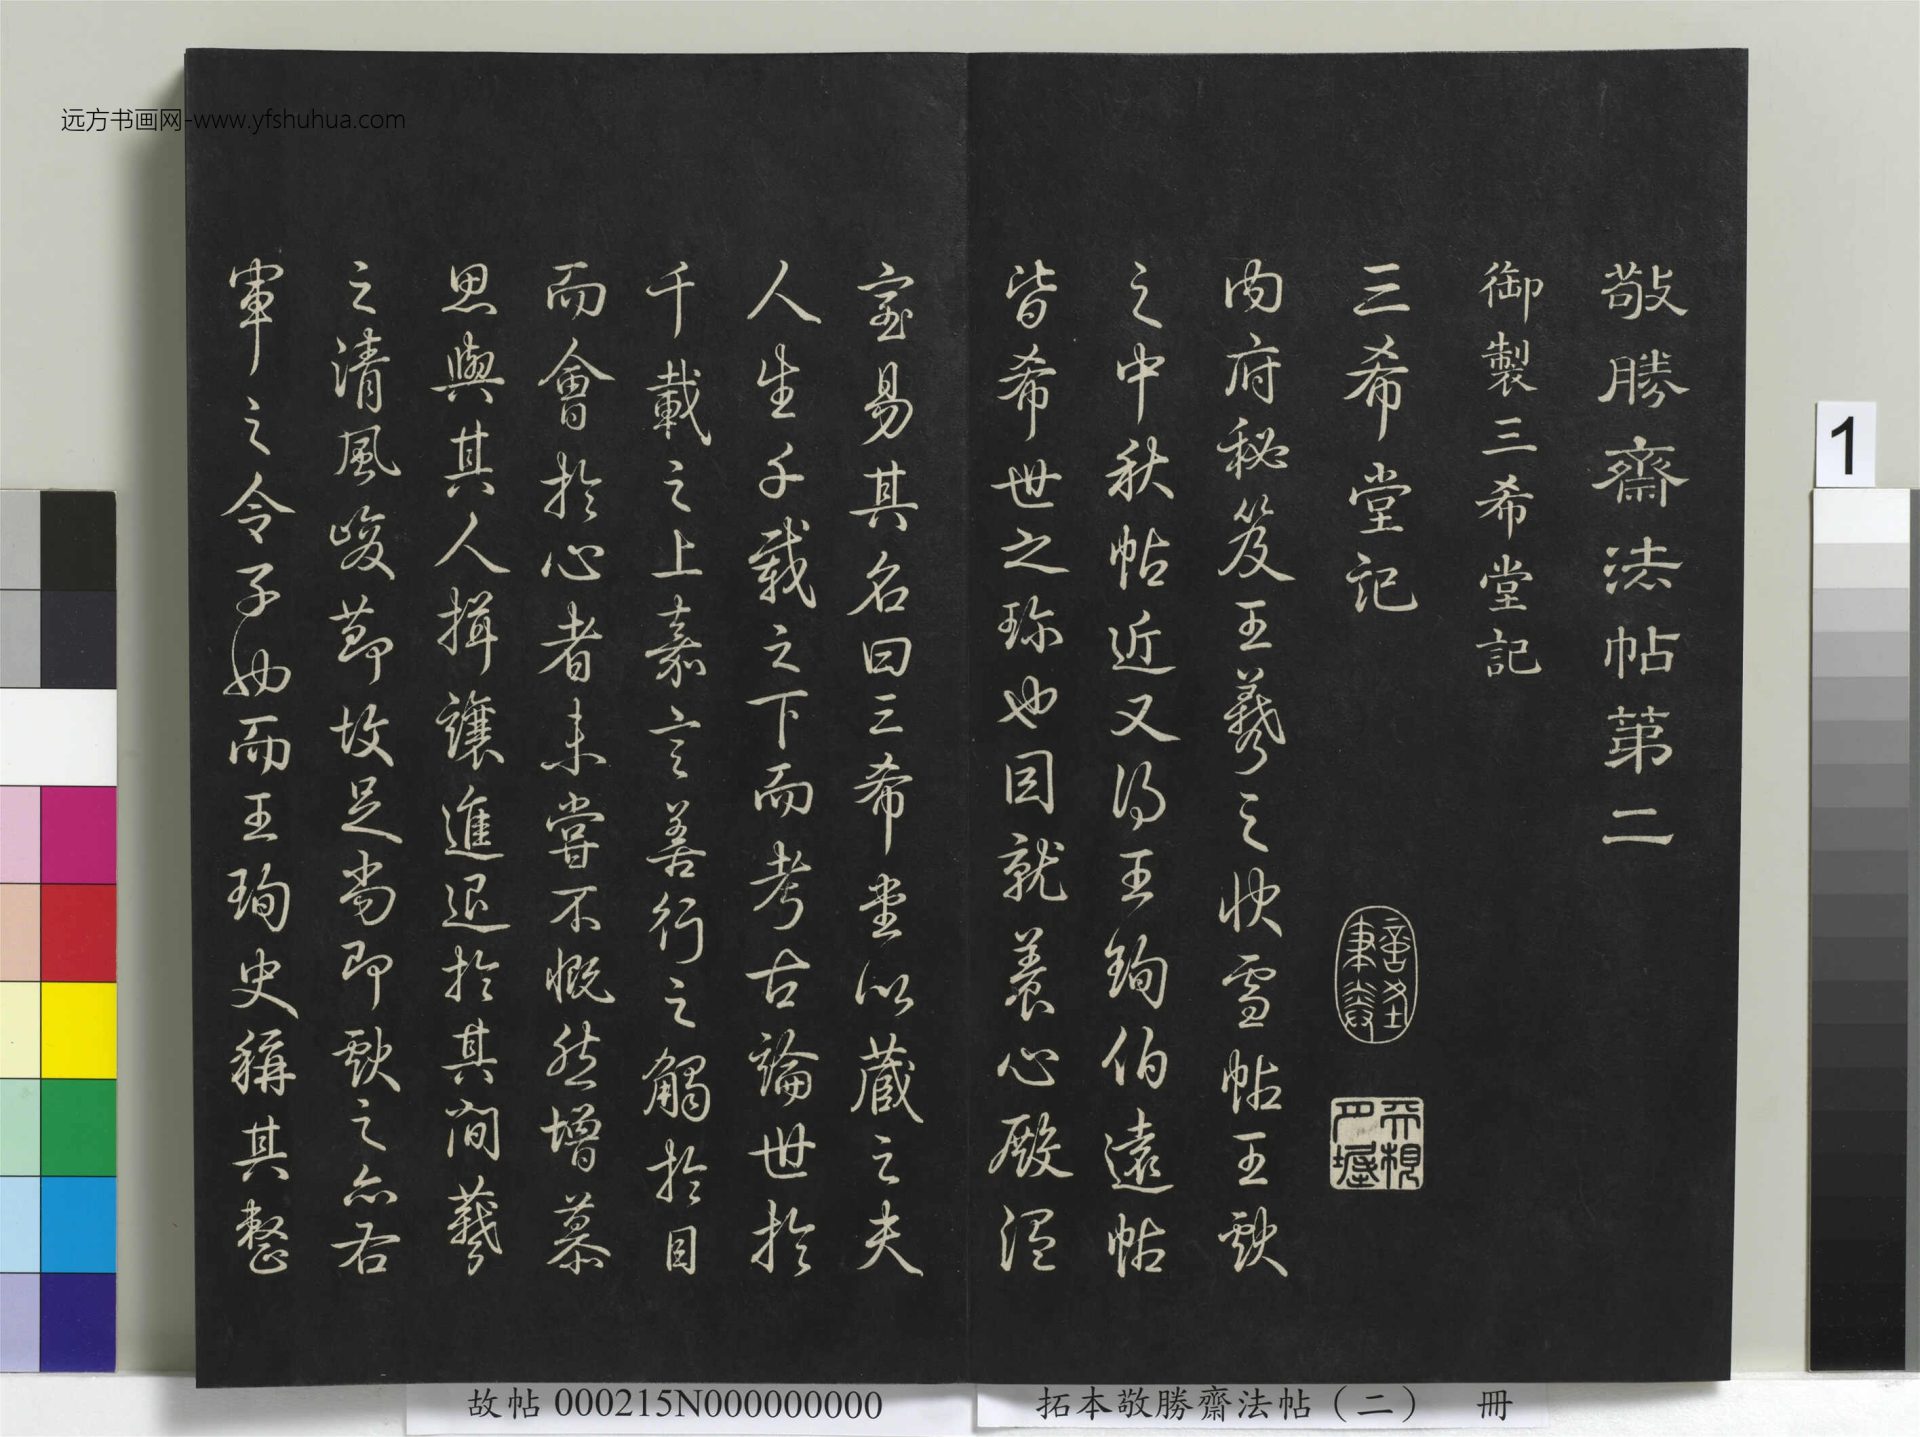 敬勝齋法帖第二
御製三希堂記
三希堂記
内府秘笈王羲之快雪帖王獻
之中秋帖近又得王珣伯遠帖
皆希世之珎也因就養心殿温
室易其名曰三希堂以蔵之夫
人生千載之下而考古論世於
千載之上嘉言善行之觸於目
而會於心者未嘗不慨然增慕
思與其人揖讓進退於其間羲
之清風峻節故足尚即獻之亦右
軍之令子也而王珣史稱其整
远方书画网-www.yfshuhua.com
1
故帖 000215N000000000
拓本敬勝齋法帖（二） 冊